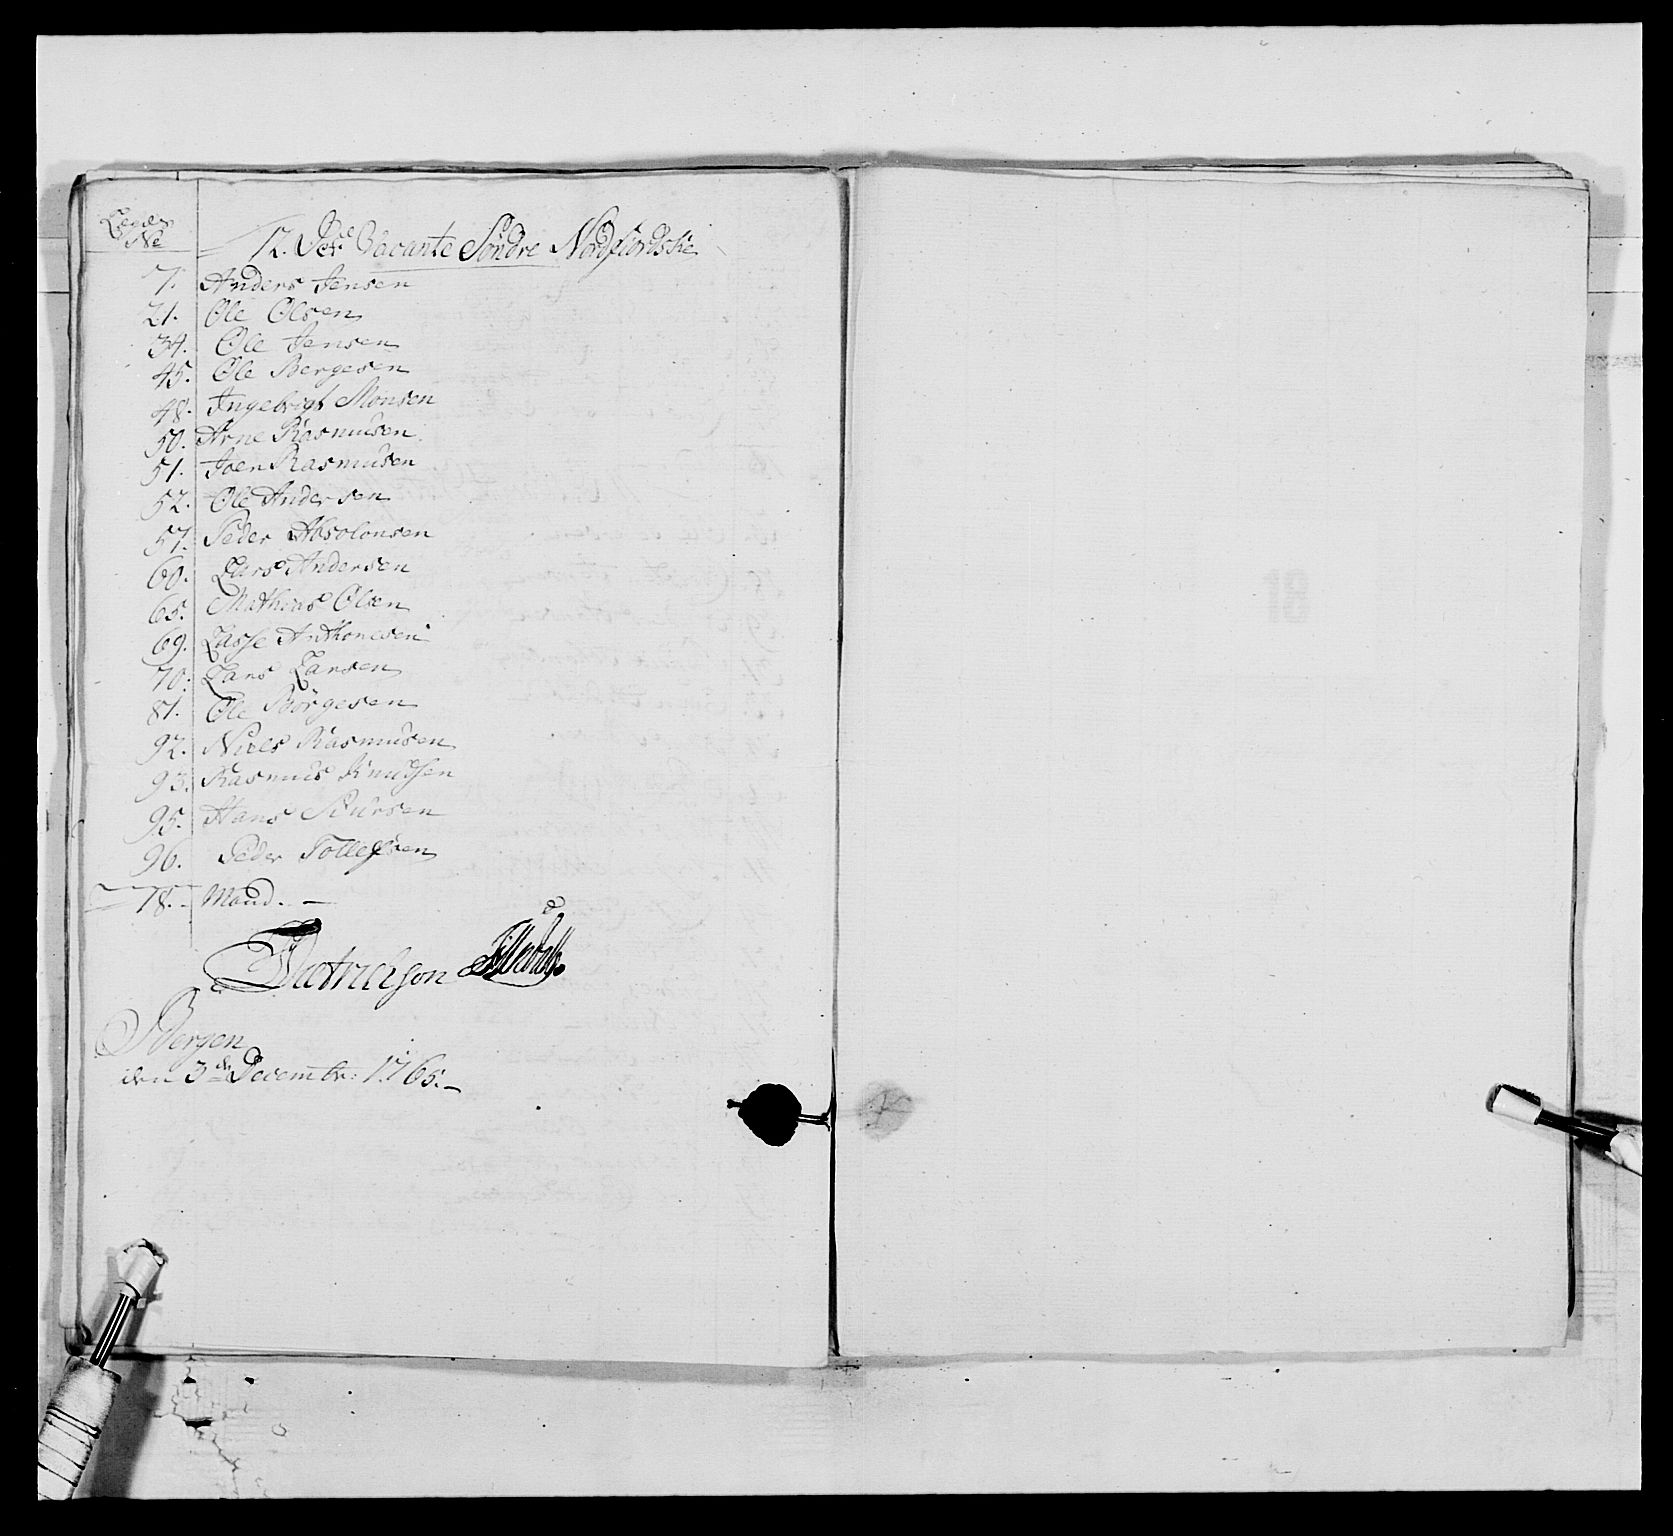 Legds
No
12. Det Vacante Söndre Nordfiordske
7. Anders Jensen
21. Ole Olsen
34. Ole Jensen
45. Ole Bergesen
48. Ingebrigt Monsen
50. Arne Rasmusen
51. Joen Rasmusen
52. Ole Andersen
57. Peder Absolonsen
60. Lars Andersen
65. Mathias Olsen
69. Lasse Anthonesen
70. Lars Larsen
81. Ole Börgesen
92. Niels Rasmusen
93. Rasmus Knudsen
95. Hans Siursen
96. Peder Tollefsen
18. Mand.
Dietrichson
Bergen
den 3de Decembr: 1765.